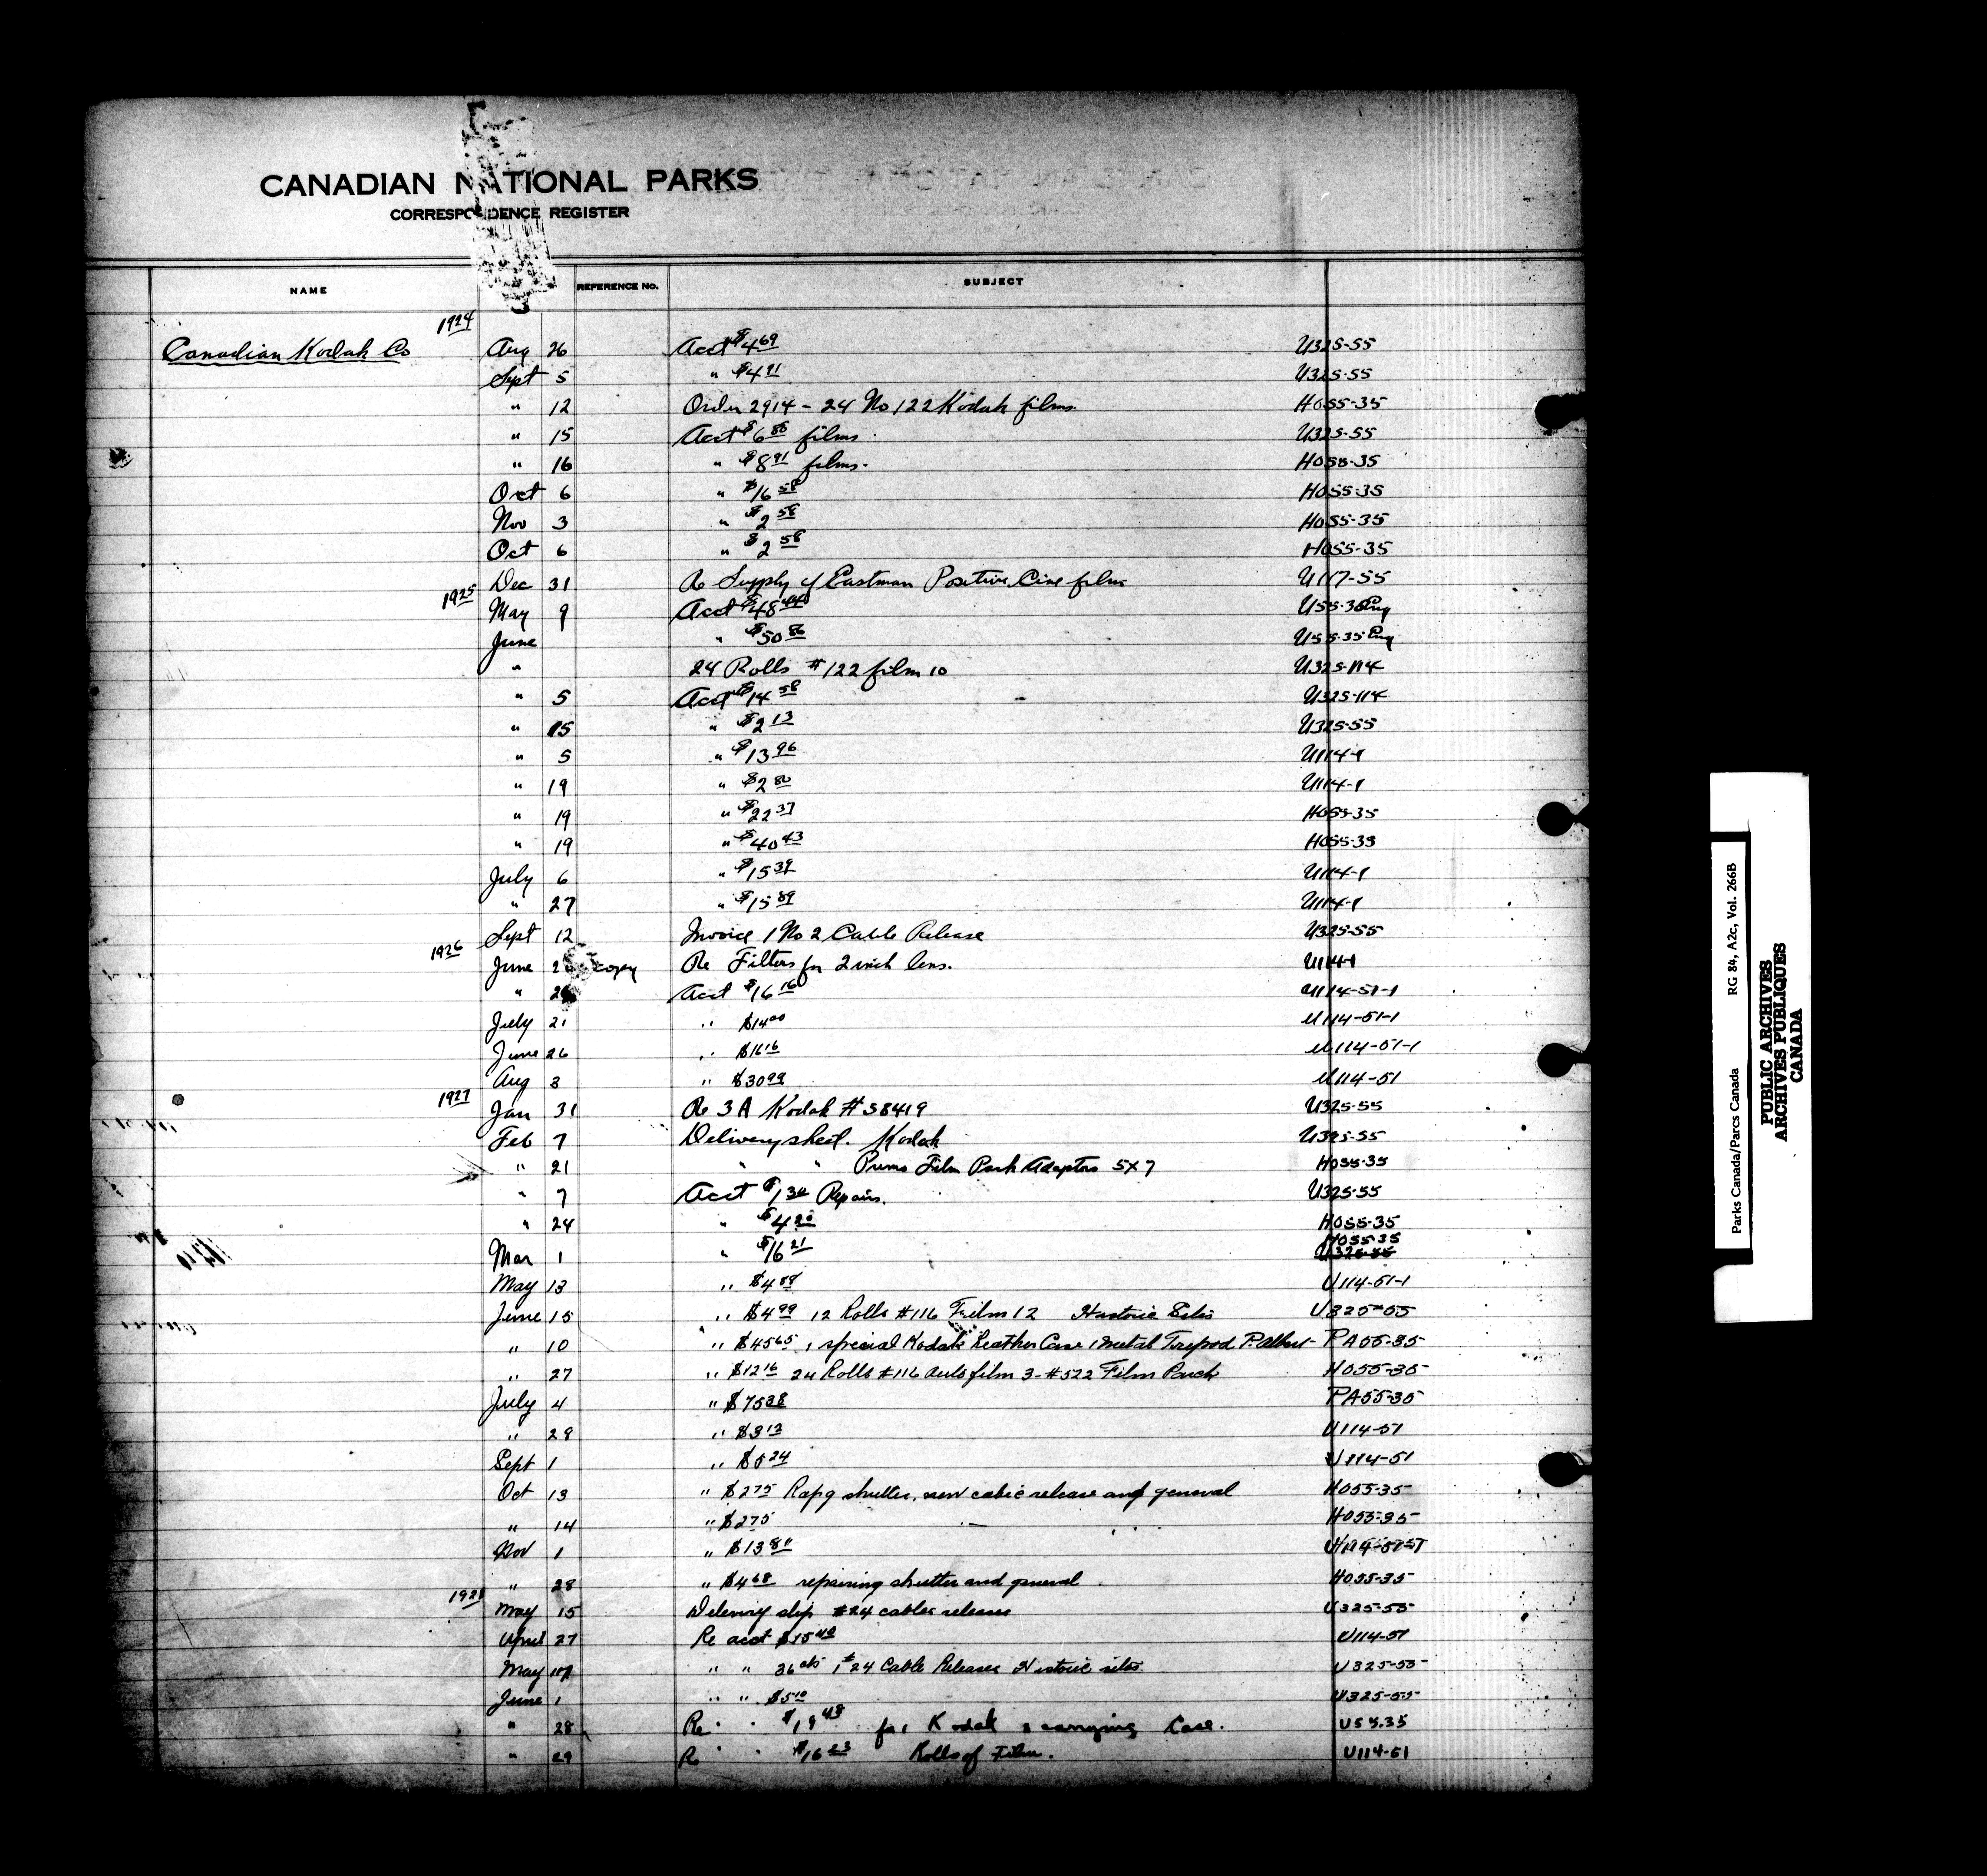 CANADIAN NATIONAL PARKS
CORRESPONDENCE REGISTER
NAME REFERENCE No. SUBJECT
1924
Canadian Kodak Co Aug 26 Acct $4.69 U325-55
Sept 5 " $4.91 U325-55
" 12 Order 2914 - 24 No 122 Kodak films. HO55-35
" 15 Acct $6.86 films. U325-55
" 16 " $8.91 films. HO55-35
Oct 6 " $16.58 HO55-35
Nov 3 " $2.58 HO55-35
Oct 6 " $2.58 HO55-35
Dec 31 Re Supply of Eastman Positive Cine film U117-55
1925
May 9 Acct $48.44 U55-35 Eng
June " $50.86 U55-35 Eng
" 24 Rolls #122 film 10 U325-114
" 5 Acct $14.58 U325-114
" 15 " $2.13 U325-55
" 5 " $13.96 U114-1
" 19 " $2.80 U114-1
" 19 " $22.37 HO55-35
" 19 " $40.43 HO55-35
July 6 " $15.39 U114-1
" 27 " $15.89 U114-1
Sept 12 Invoice 1 No 2 Cable Release U325-55
1926
June copy Re Filters for 2 inch lens. U114-1
" 26 Acct $16.16 U114-51-1
July 21 " $14.00 U114-51-1
June 26 " $16.16 U114-51-1
Aug 3 " $30.99 U114-51
1927
Jan 31 Re 3A Kodak #58419 U325-55
Feb 7 Delivery sheet. Kodak U325-55
" 21 " " Premo Film Pack Adaptors 5X7 HO55-35
" 7 Acct $1.30 Repairs. U325-55
" 24 " $4.20 HO55-35
HO55-35
Mar 1 " $16.21 U325-55
May 13 " $4.08 U114-51-1
June 15 " $4.99 12 Rolls #116 Film 12 Historic Sites U325-55
" 10 " $45.65 1 special Kodak Leather Case 1 metal Trypod P. Albert PA55-35
" 27 " $12.16 24 Rolls #116 auto film 3-#522 Film Pack HO55-35
July 4 " $75.38 PA55-35
" 29 " $3.13 U114-51
Sept 1 " $5.24 U114-51
Oct 13 " $2.75 Rapg shutter, new cable release and general HO55-35
" 14 " $2.75 HO55-35
Nov 1 " $13.81
" 28 " $4.68 repairing shutter and general HO55-35
1928
May 15 Delivery slip #24 cables releases U325-55
April 27 Re acct $15.40 U114-51
May " " 36 cts 1 #24 Cable Releases Historic sites U325-55
June 1 " " $5.10 U325-55
" 28 Re " " $19.43 for Kodak & carrying Case. U55.35
" 29 Re " " $16.23 Rolls of Film. U114-51
Parks Canada/Parcs Canada RG 84, A2c, Vol. 266B
PUBLIC ARCHIVES
ARCHIVES PUBLIQUES
CANADA